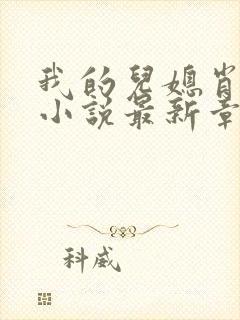 我的兒媳肖
小說最新章
科威